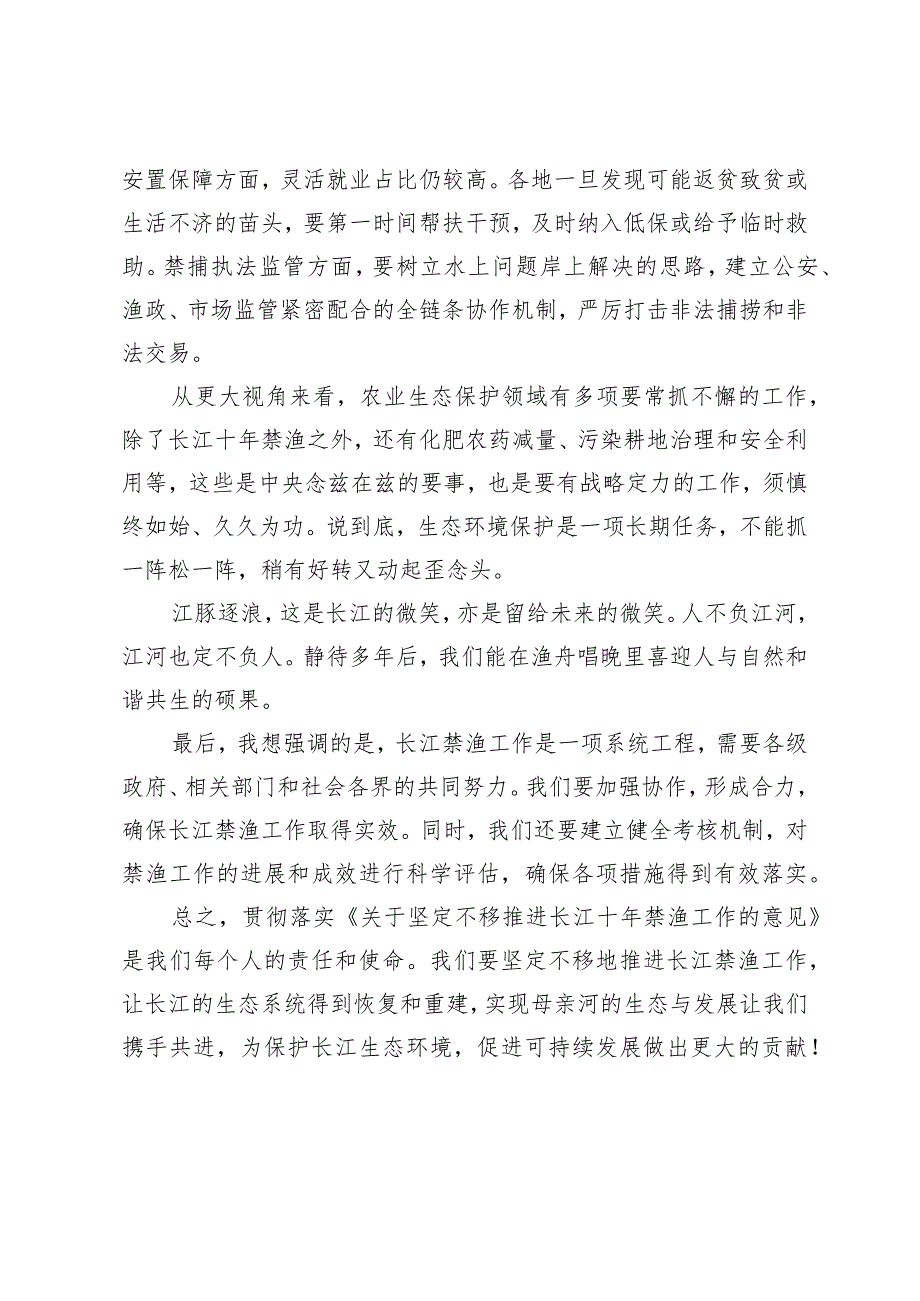 安置保障方面，灵活就业占比仍较高。各地一旦发现可能返贫致贫或
生活不济的苗头，要第一时间帮扶干预，及时纳入低保或给予临时救
助。禁捕执法监管方面，要树立水上问题岸上解决的思路，建立公安、
渔政、市场监管紧密配合的全链条协作机制，严厉打击非法捕捞和非
法交易。
从更大视角来看，农业生态保护领域有多项要常抓不懈的工作，
除了长江十年禁渔之外，还有化肥农药减量、污染耕地治理和安全利
用等，这些是中央念兹在兹的要事，也是要有战略定力的工作，须慎
终如始、久久为功。说到底，生态环境保护是一项长期任务，不能抓
一阵松一阵，稍有好转又动起歪念头。
江豚逐浪，这是长江的微笑，亦是留给未来的微笑。人不负江河，
江河也定不负人。静待多年后，我们能在渔舟唱晚里喜迎人与自然和
谐共生的硕果。
最后，我想强调的是，长江禁渔工作是一项系统工程，需要各级
政府、相关部门和社会各界的共同努力。我们要加强协作，形成合力，
确保长江禁渔工作取得实效。同时，我们还要建立健全考核机制，对
禁渔工作的进展和成效进行科学评估，确保各项措施得到有效落实。
总之，贯彻落实《关于坚定不移推进长江十年禁渔工作的意见》
是我们每个人的责任和使命。我们要坚定不移地推进长江禁渔工作，
让长江的生态系统得到恢复和重建，实现母亲河的生态与发展让我们
携手共进，为保护长江生态环境，促进可持续发展做出更大的贡献！